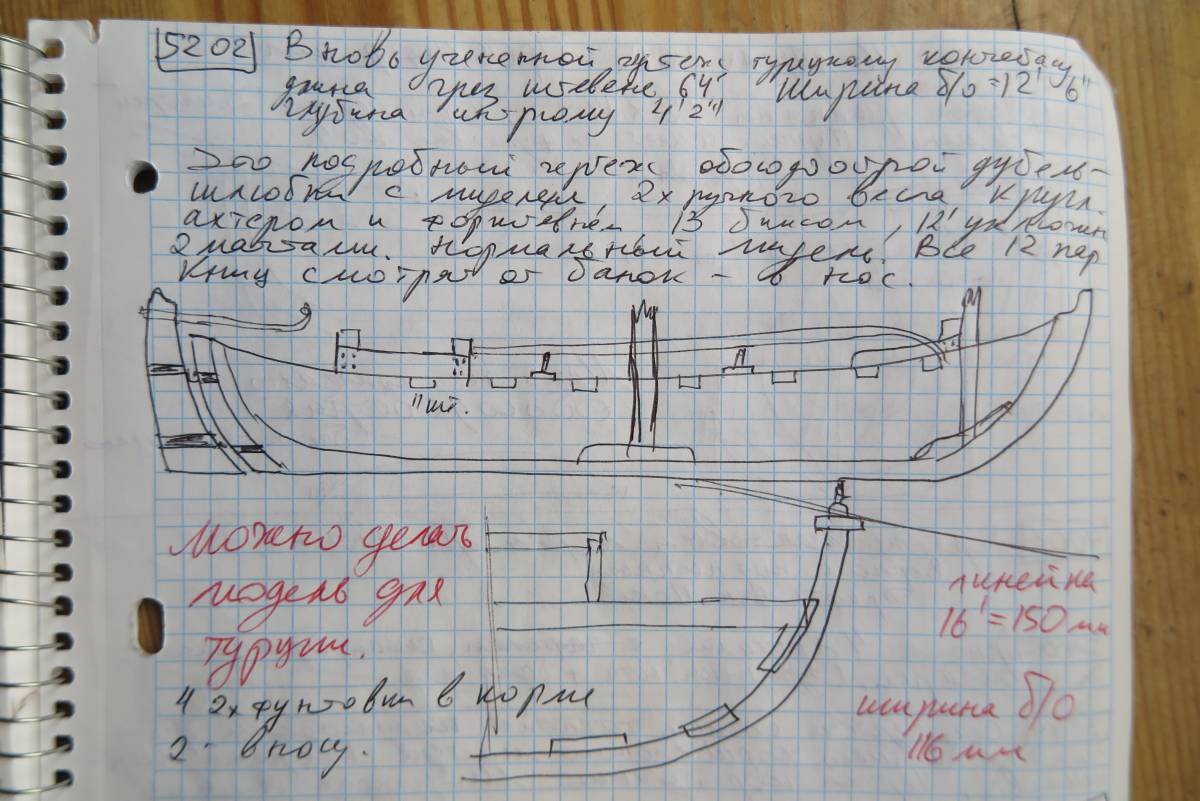 5202 Вновь учененной чертеж турецкому кончебасу
длина чрез штевене 64' Ширина б/о = 12' 6"
глубина интрюму 4' 2"
Это подробный чертеж обоюдоострой дубель-
шлюбки с миделем, 2х ручного весла кругл.
ахтером и форштевнем 13 бимсом, 12 уключин
2 мачтами. Нормальный мидель. Все 12 пар
Книц смотрят от банок - в нос.
11 шт.
Можно делать
модель для
Турции.
линейка
16' = 150 мм
4 2х фунтовки в корме
2 - в носу.
ширина б/о
116 мм